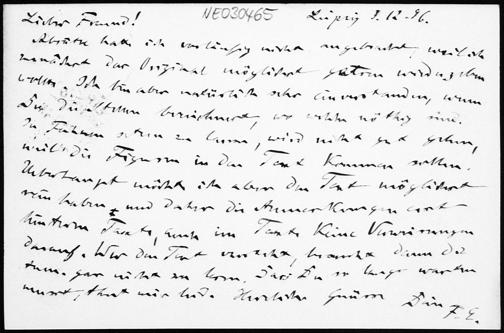 NE030465
Lieber Freund! Leipzig 3.12.96.
Absätze hatte ich vorläufig nicht angebracht, weil ich
zunächst das Original möglichst getreu wiedergeben
wollte. Ich bin aber natürlich sehr einverstanden, wenn
Du die Stellen bezeichnest, wo welche nöthig sind.
In Fahnen setzen zu lassen, wird nicht gut gehen,
weil die Figuren in den Text kommen sollen.
Ueberhaupt möchte ich aber den Text möglichst
rein haben und daher die Anmerkungen erst
hinterm Texte, auch im Texte keine Verweisungen
darauf. Wer den Text versteht, braucht dann die
gar nicht zu lesen. Dass Du so lange warten
musst, thut mir leid. Herzliche Grüsse Dein
F. E.